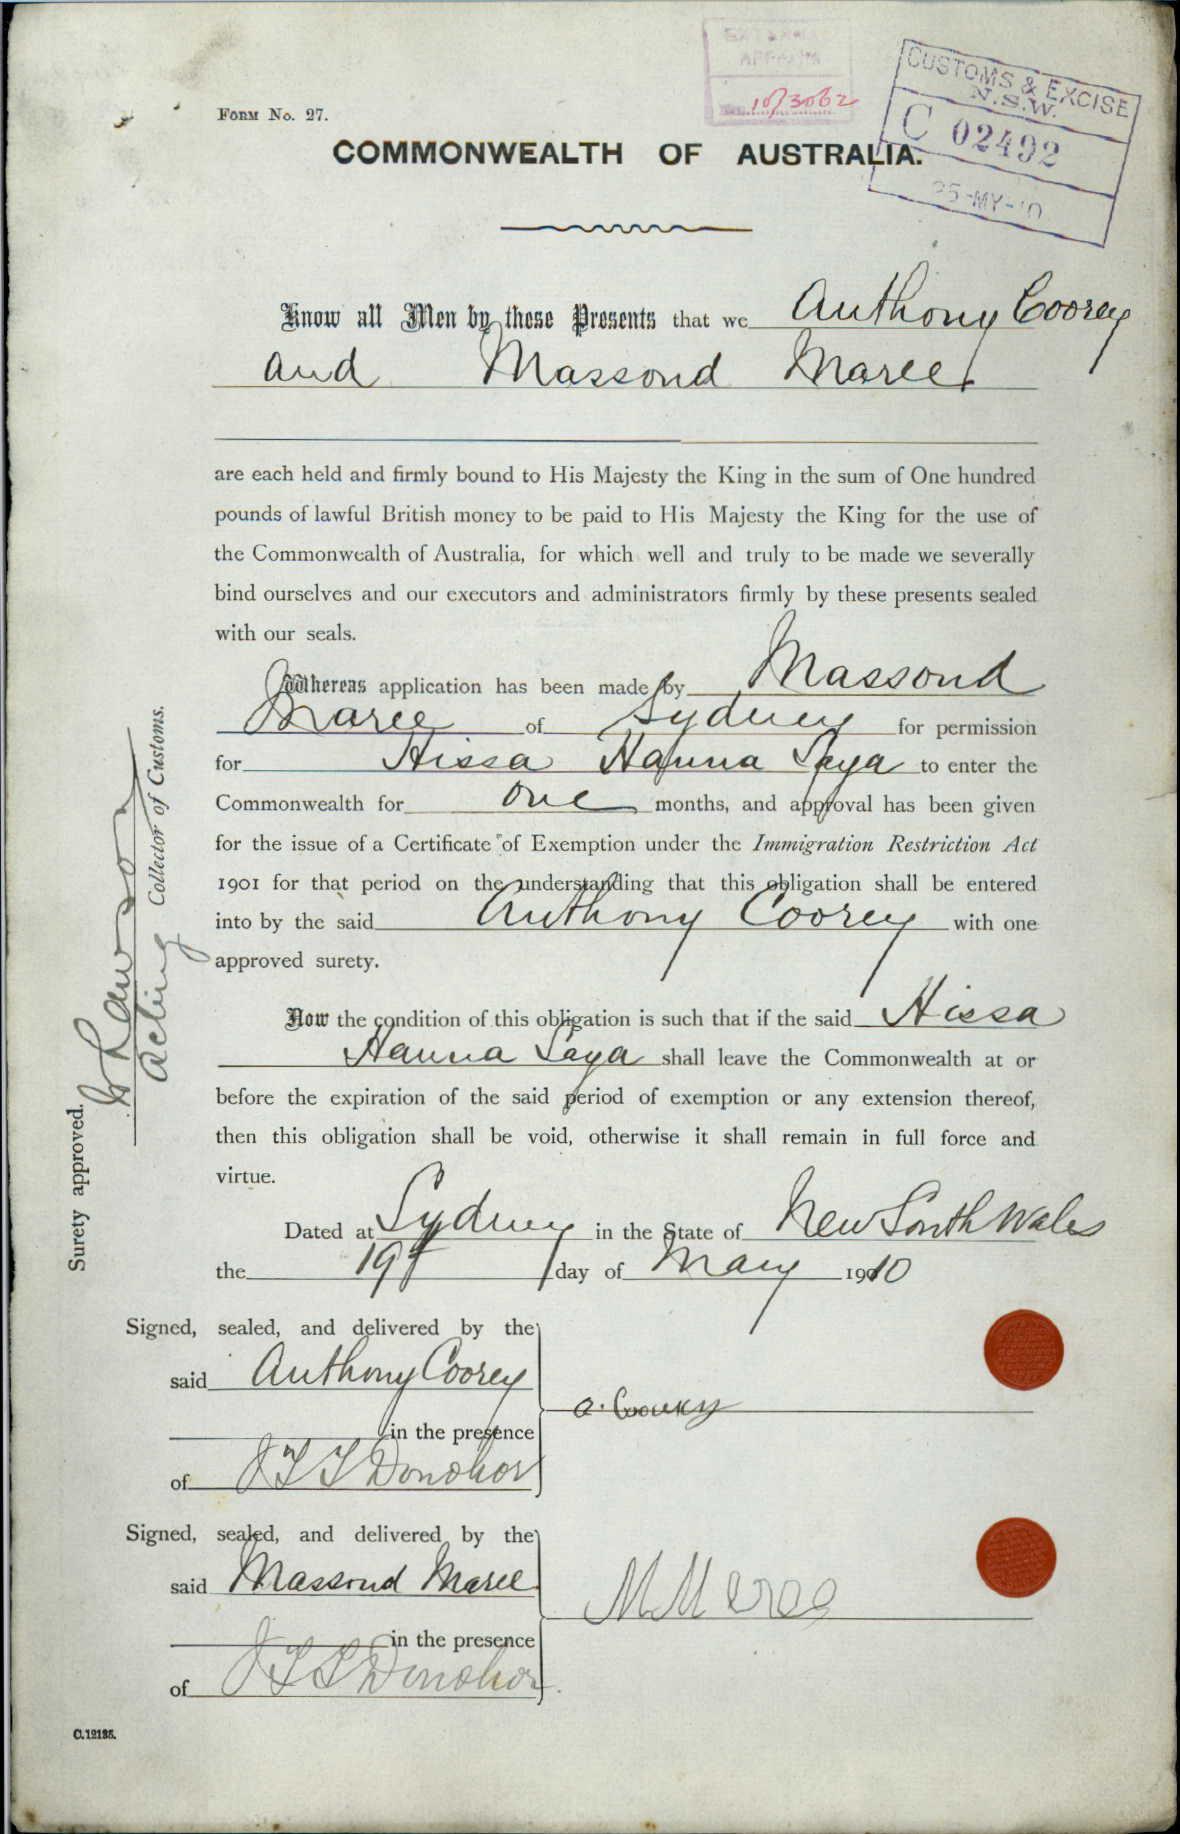 EXTERNAL
AFFAIRS
10/3062
CUSTOMS & EXCISE
N.S.W.
C 02492
25-MY-10
FORM No. 27.
COMMONWEALTH OF AUSTRALIA.
Know all Men by these Presents that we Anthony Coorey
and Massoud Maree
are each held and firmly bound to His Majesty the King in the sum of One hundred
pounds of lawful British money to be paid to His Majesty the King for the use of
the Commonwealth of Australia, for which well and truly to be made we severally
bind ourselves and our executors and administrators firmly by these presents sealed
with our seals.
Whereas application has been made by Massoud
Maree of Sydney for permission
for Hissa Hanna Saya to enter the
Commonwealth for one months, and approval has been given
for the issue of a Certificate of Exemption under the Immigration Restriction Act
1901 for that period on the understanding that this obligation shall be entered
into by the said Anthony Coorey with one
approved surety.
Now the condition of this obligation is such that if the said Hissa
Hanna Saya shall leave the Commonwealth at or
before the expiration of the said period of exemption or any extension thereof,
then this obligation shall be void, otherwise it shall remain in full force and
virtue.
Dated at Sydney in the State of New South Wales
the 19th day of May 1910
Signed, sealed, and delivered by the
said Anthony Coorey
in the presence
of J T T Donohoe
A. Coorey
Signed, sealed, and delivered by the
said Massoud Maree
in the presence
of J T T Donohoe
M Maree
Surety approved.
Acting Collector of Customs.
C.12185.